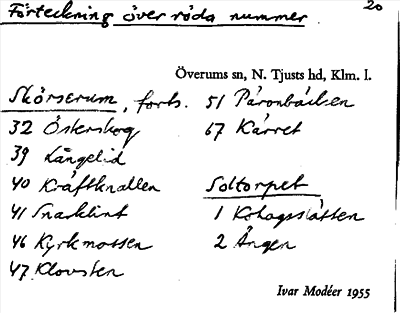 Förteckning över röda nummer
20
Överums sn, N. Tjusts hd, Klm. l.
Skörserum, forts.
32 Österskog
39 Långelid
40 Kräftknallen
41 Snarklint
46 Kyrkmossen
47 Klovsten
51 Päronbacken
67 Kärret
Soltorpet
1 Kohagsslåtten
2 Ängen
Ivar Modéer 1955